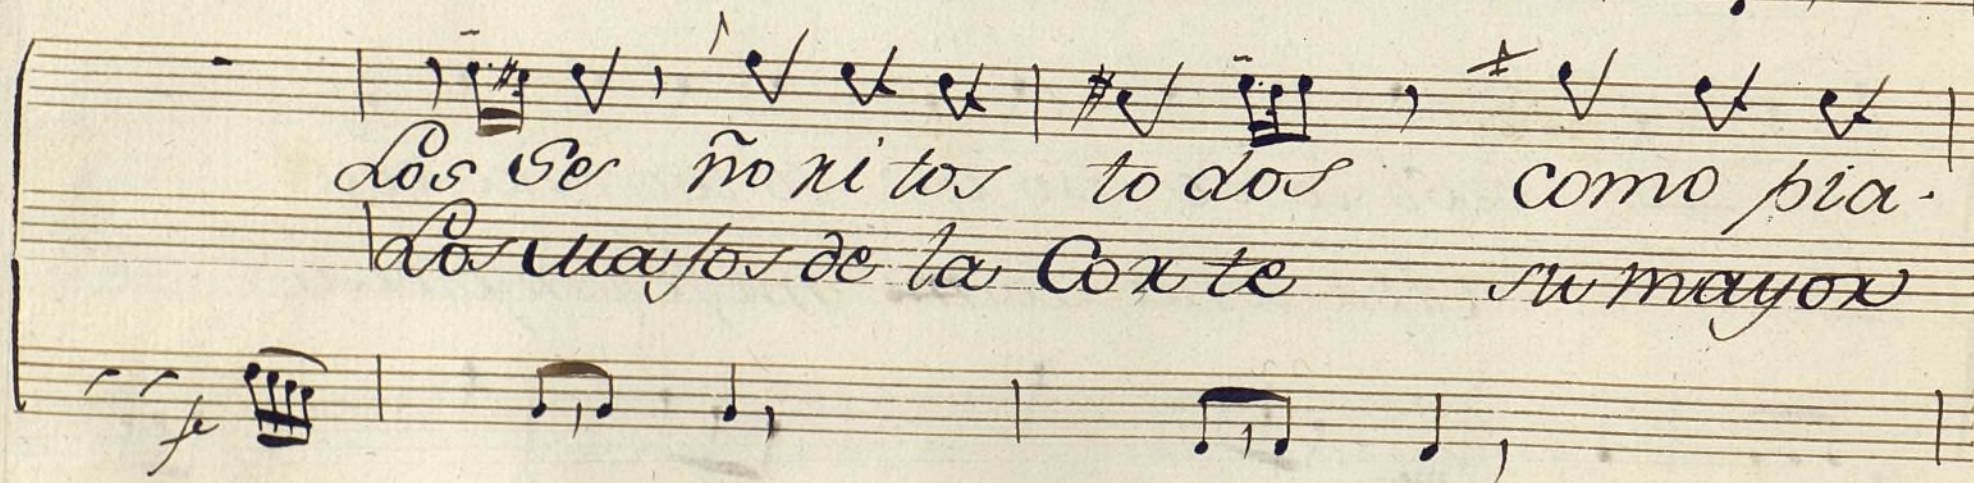 Los Se ñori tos to dos como pia-
Los Majos de la Corte su mayor
fe